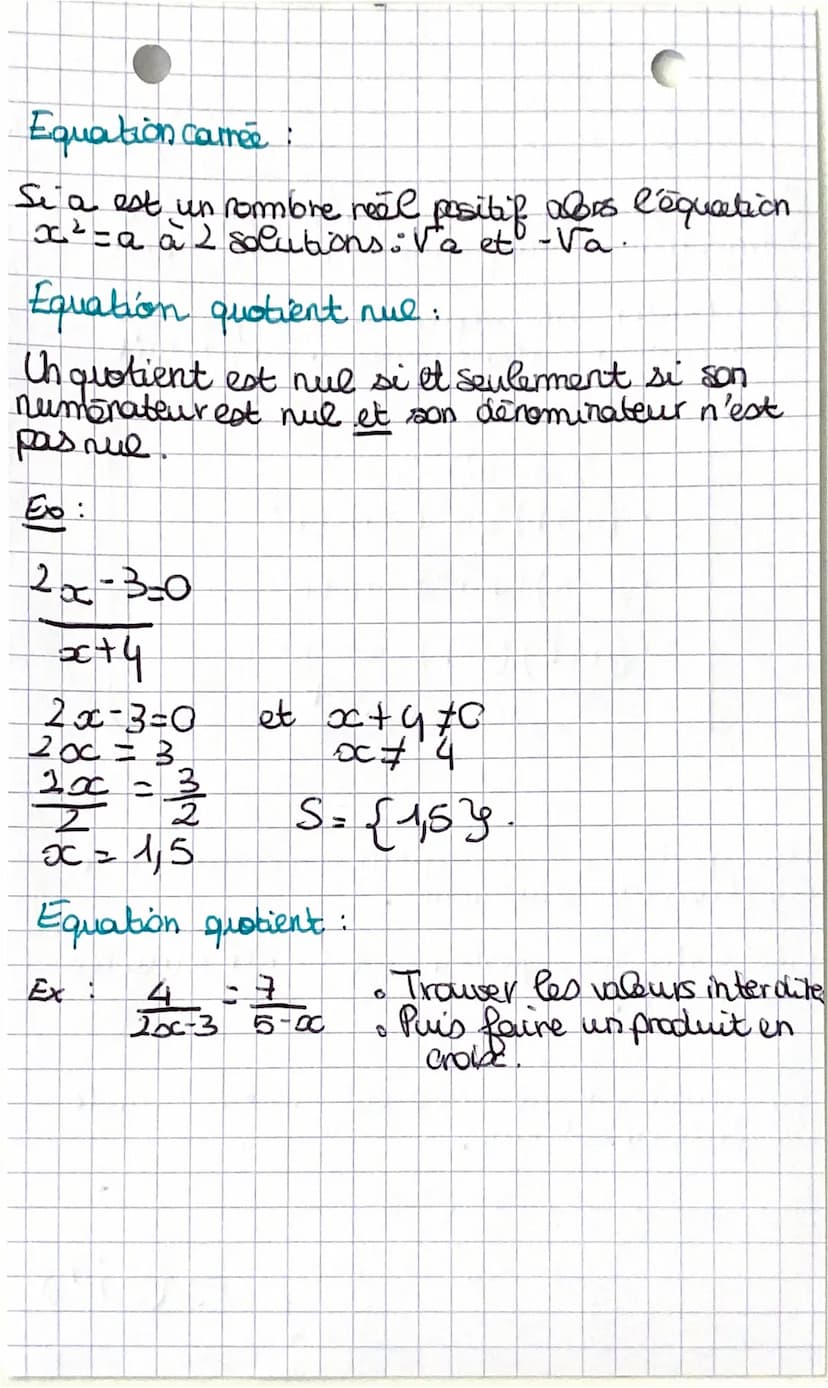 Equation carrée :
Si a est un nombre réel positif alors l'équation
x² = a à 2 solutions : √a et -√a.
Equation quotient nul :
Un quotient est nul si et seulement si son
numérateur est nul et son dénominateur n'est
pas nul.
Ex :
2x - 3 = 0
x + 4
2x - 3 = 0 et x + 4 ≠ 0
2x = 3 x ≠ 4
2x/2 = 3/2
S = {1,5}.
x = 1,5
Equation quotient :
Ex : 4/(2x-3) = 7/(5-x) • Trouver les valeurs interdite
• Puis faire un produit en
croix.